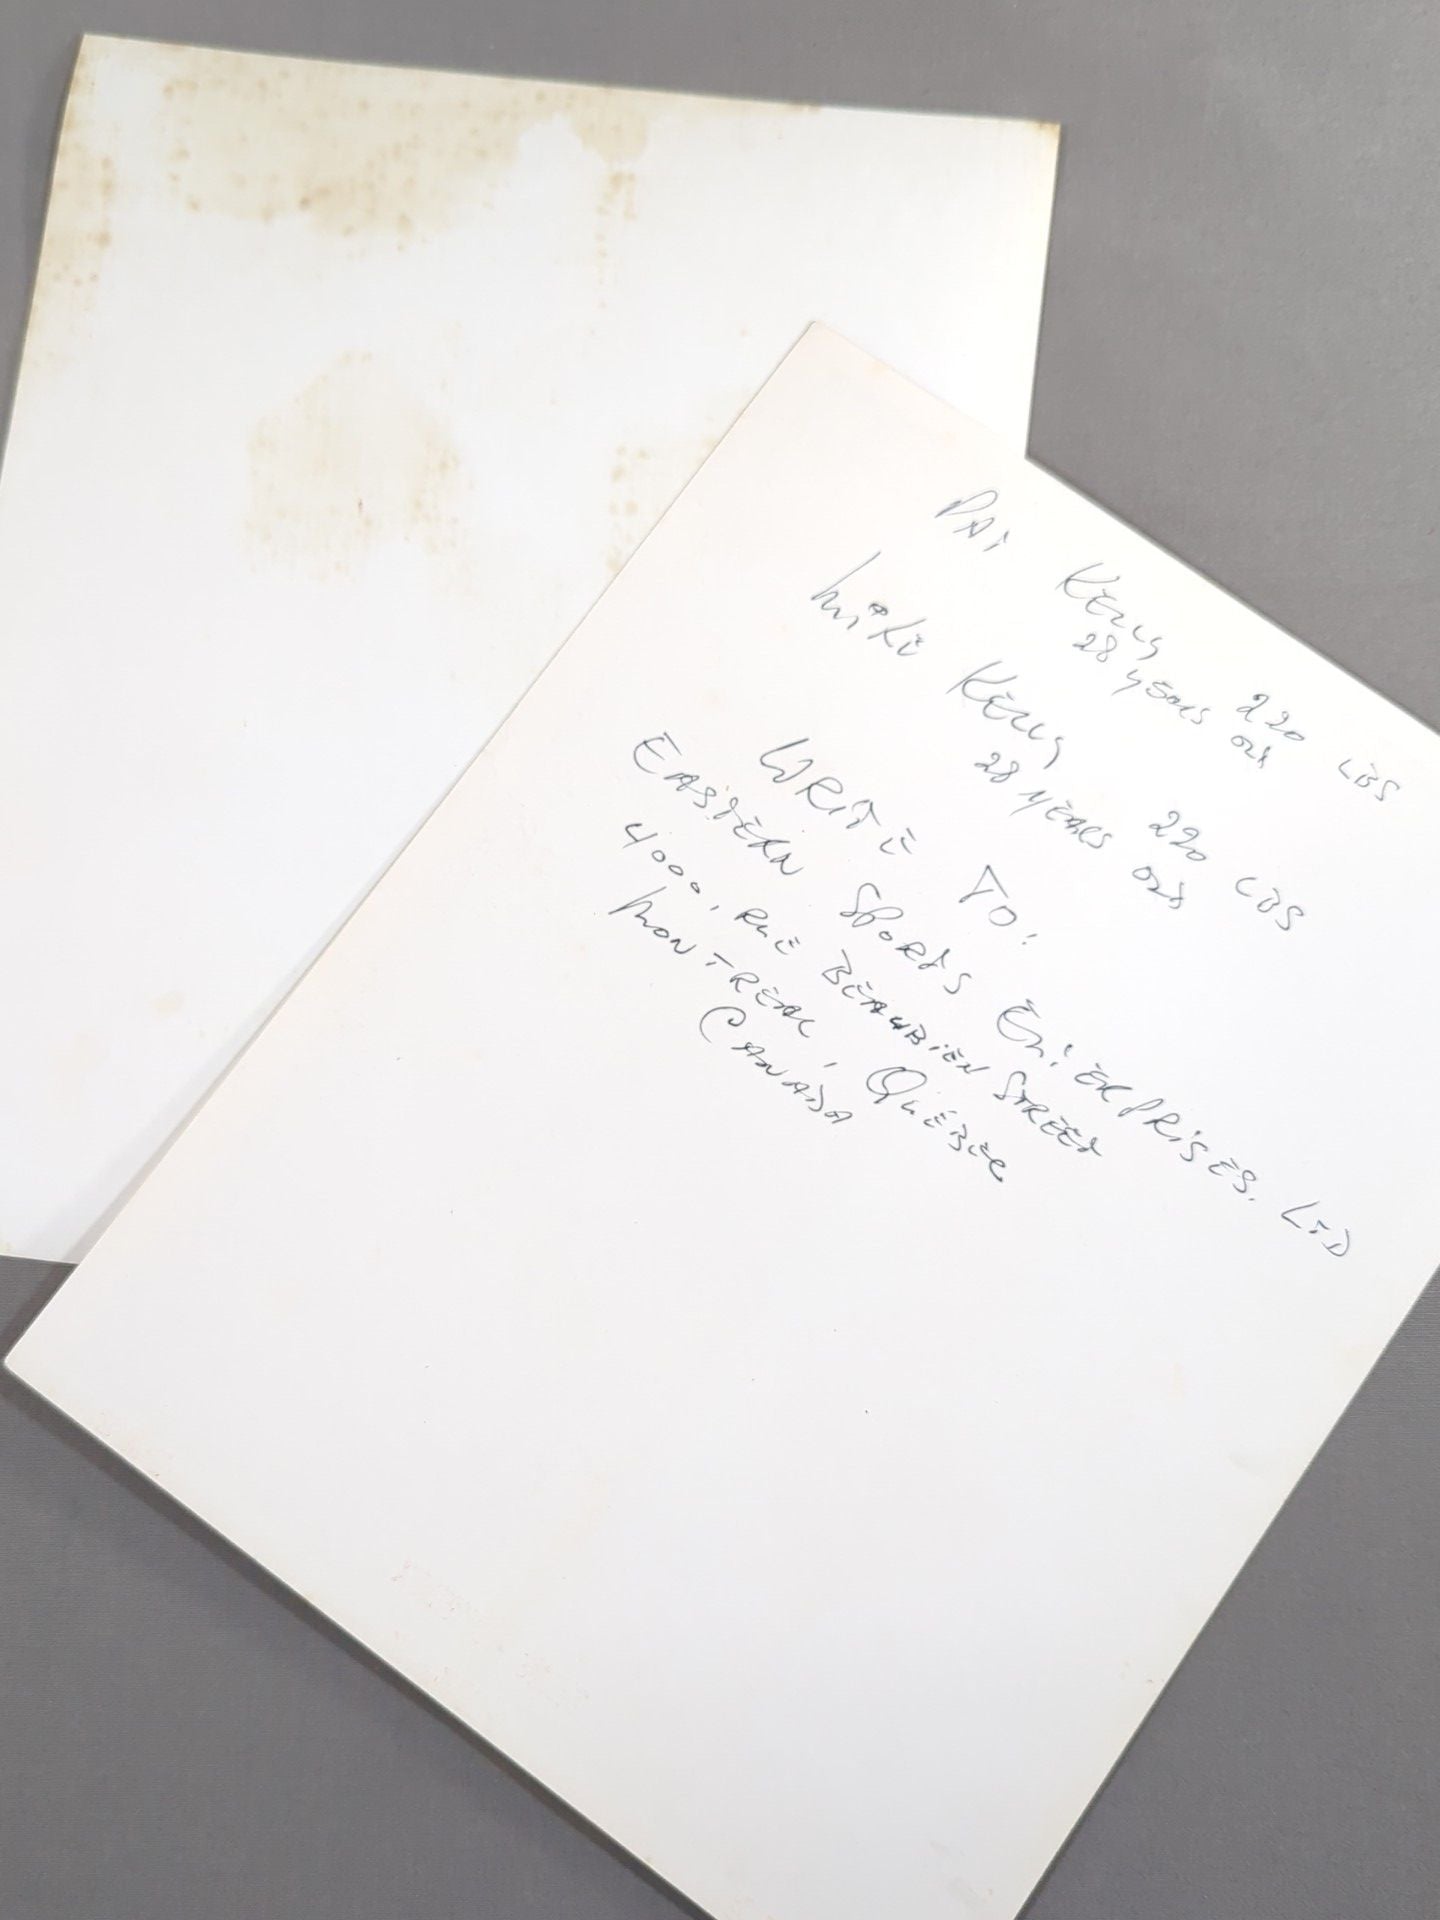 PAT KELLY 220 LBS
28 YEARS OLD
MIKE KELLY 220 LBS
28 YEARS OLD
WRITE TO:
EASTERN SPORTS ENTERPRISES. LTD
4000, RUE BEAUBIEN STREET
MONTREAL, QUÉBEC
CANADA